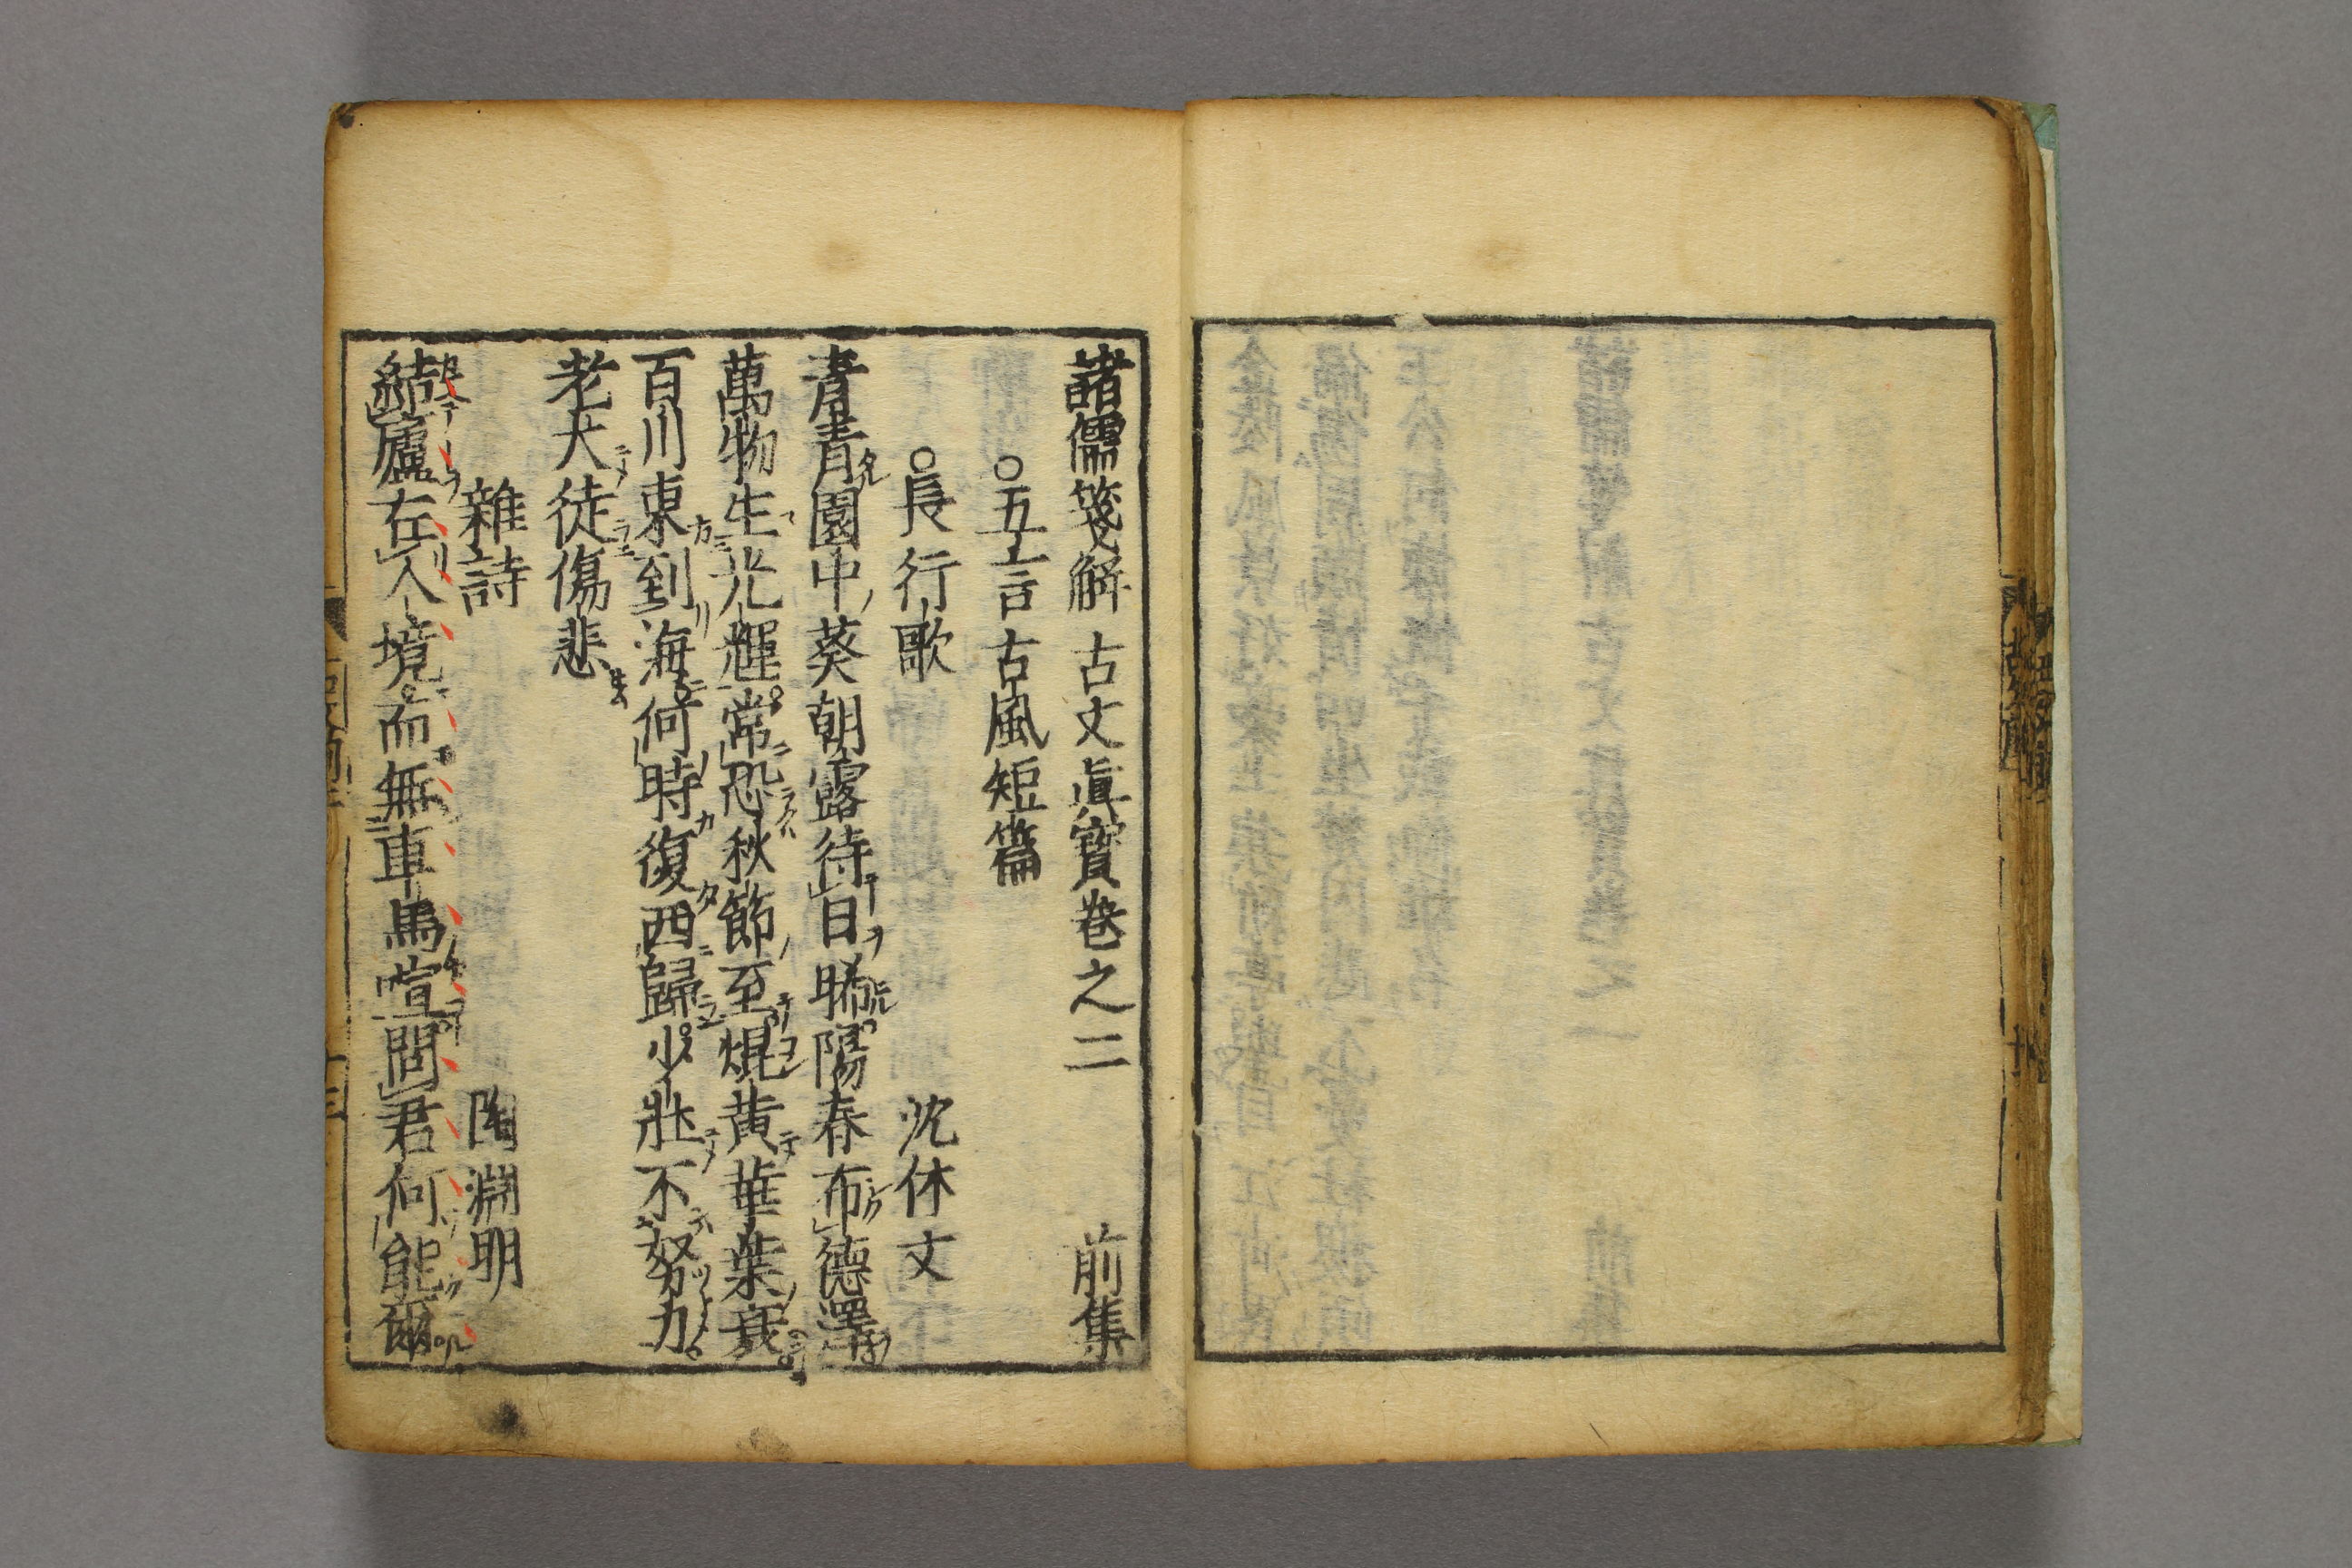 諸儒箋解古文眞寳卷之二 前集
○五言古風短篇
○長行歌 沈休文
青青園中葵朝露待日晞陽春布德澤
萬物生光輝常恐秋節至焜黄華葉衰
百川東到海何時復西歸少壯不努力
老大徒傷悲
雜詩 陶淵明
結廬在人境而無車馬喧問君何能爾